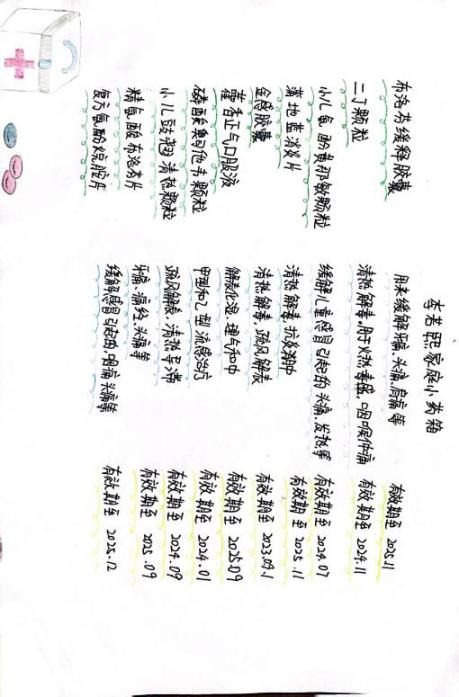 李若熙家庭小药箱
布洛芬缓释胶囊 用来缓解牙痛、头痛、肩痛等 有效期至 2025.11
二丁颗粒 清热解毒,用于火热毒盛,咽喉肿痛 有效期至 2024.11
小儿氨酚黄那敏颗粒 缓解儿童感冒引起的头痛、发热等 有效期至 2024.07
蒲地蓝消炎片 清热解毒 抗炎消肿 有效期至 2025.11
金感胶囊 清热解毒,疏风解表 有效期至 2023.09.1
藿香正气口服液 解表化湿、理气和中 有效期至 2025.09
磷酸奥司他韦颗粒 甲型和乙型流感治疗 有效期至 2024.01
小儿豉翘清热颗粒 疏风解表、清热导滞 有效期至 2024.09
精氨酸布洛芬片 牙痛、痛经、头痛等 有效期至 2025.09
复方氨酚烷胺片 缓解感冒引起的咽痛 头痛等 有效期至 2025.12